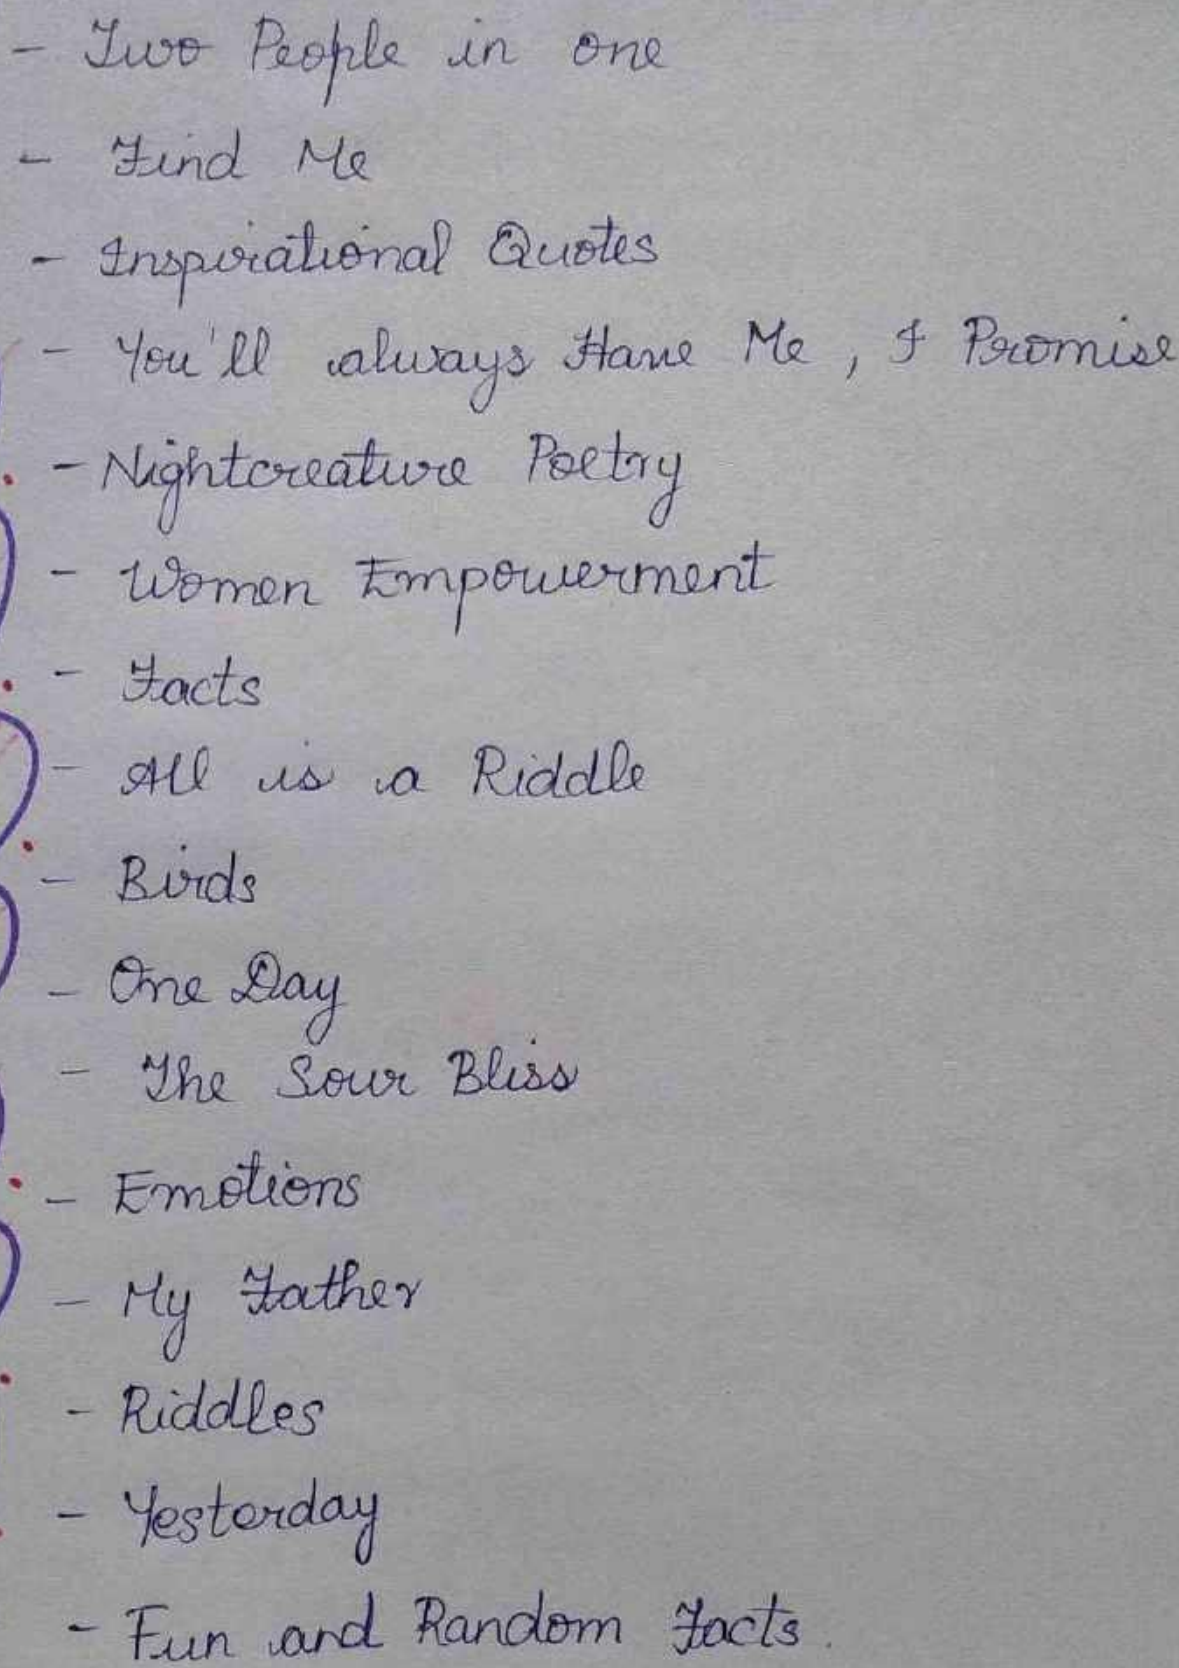 - Two People in one
- Find Me
- Inspirational Quotes
- You'll always Have Me, I Promise
- Nightcreature Poetry
- Women Empowerment
- Facts
- All is a Riddle
- Birds
- One Day
- The Sour Bliss
- Emotions
- My Father
- Riddles
- Yesterday
- Fun and Random Facts.